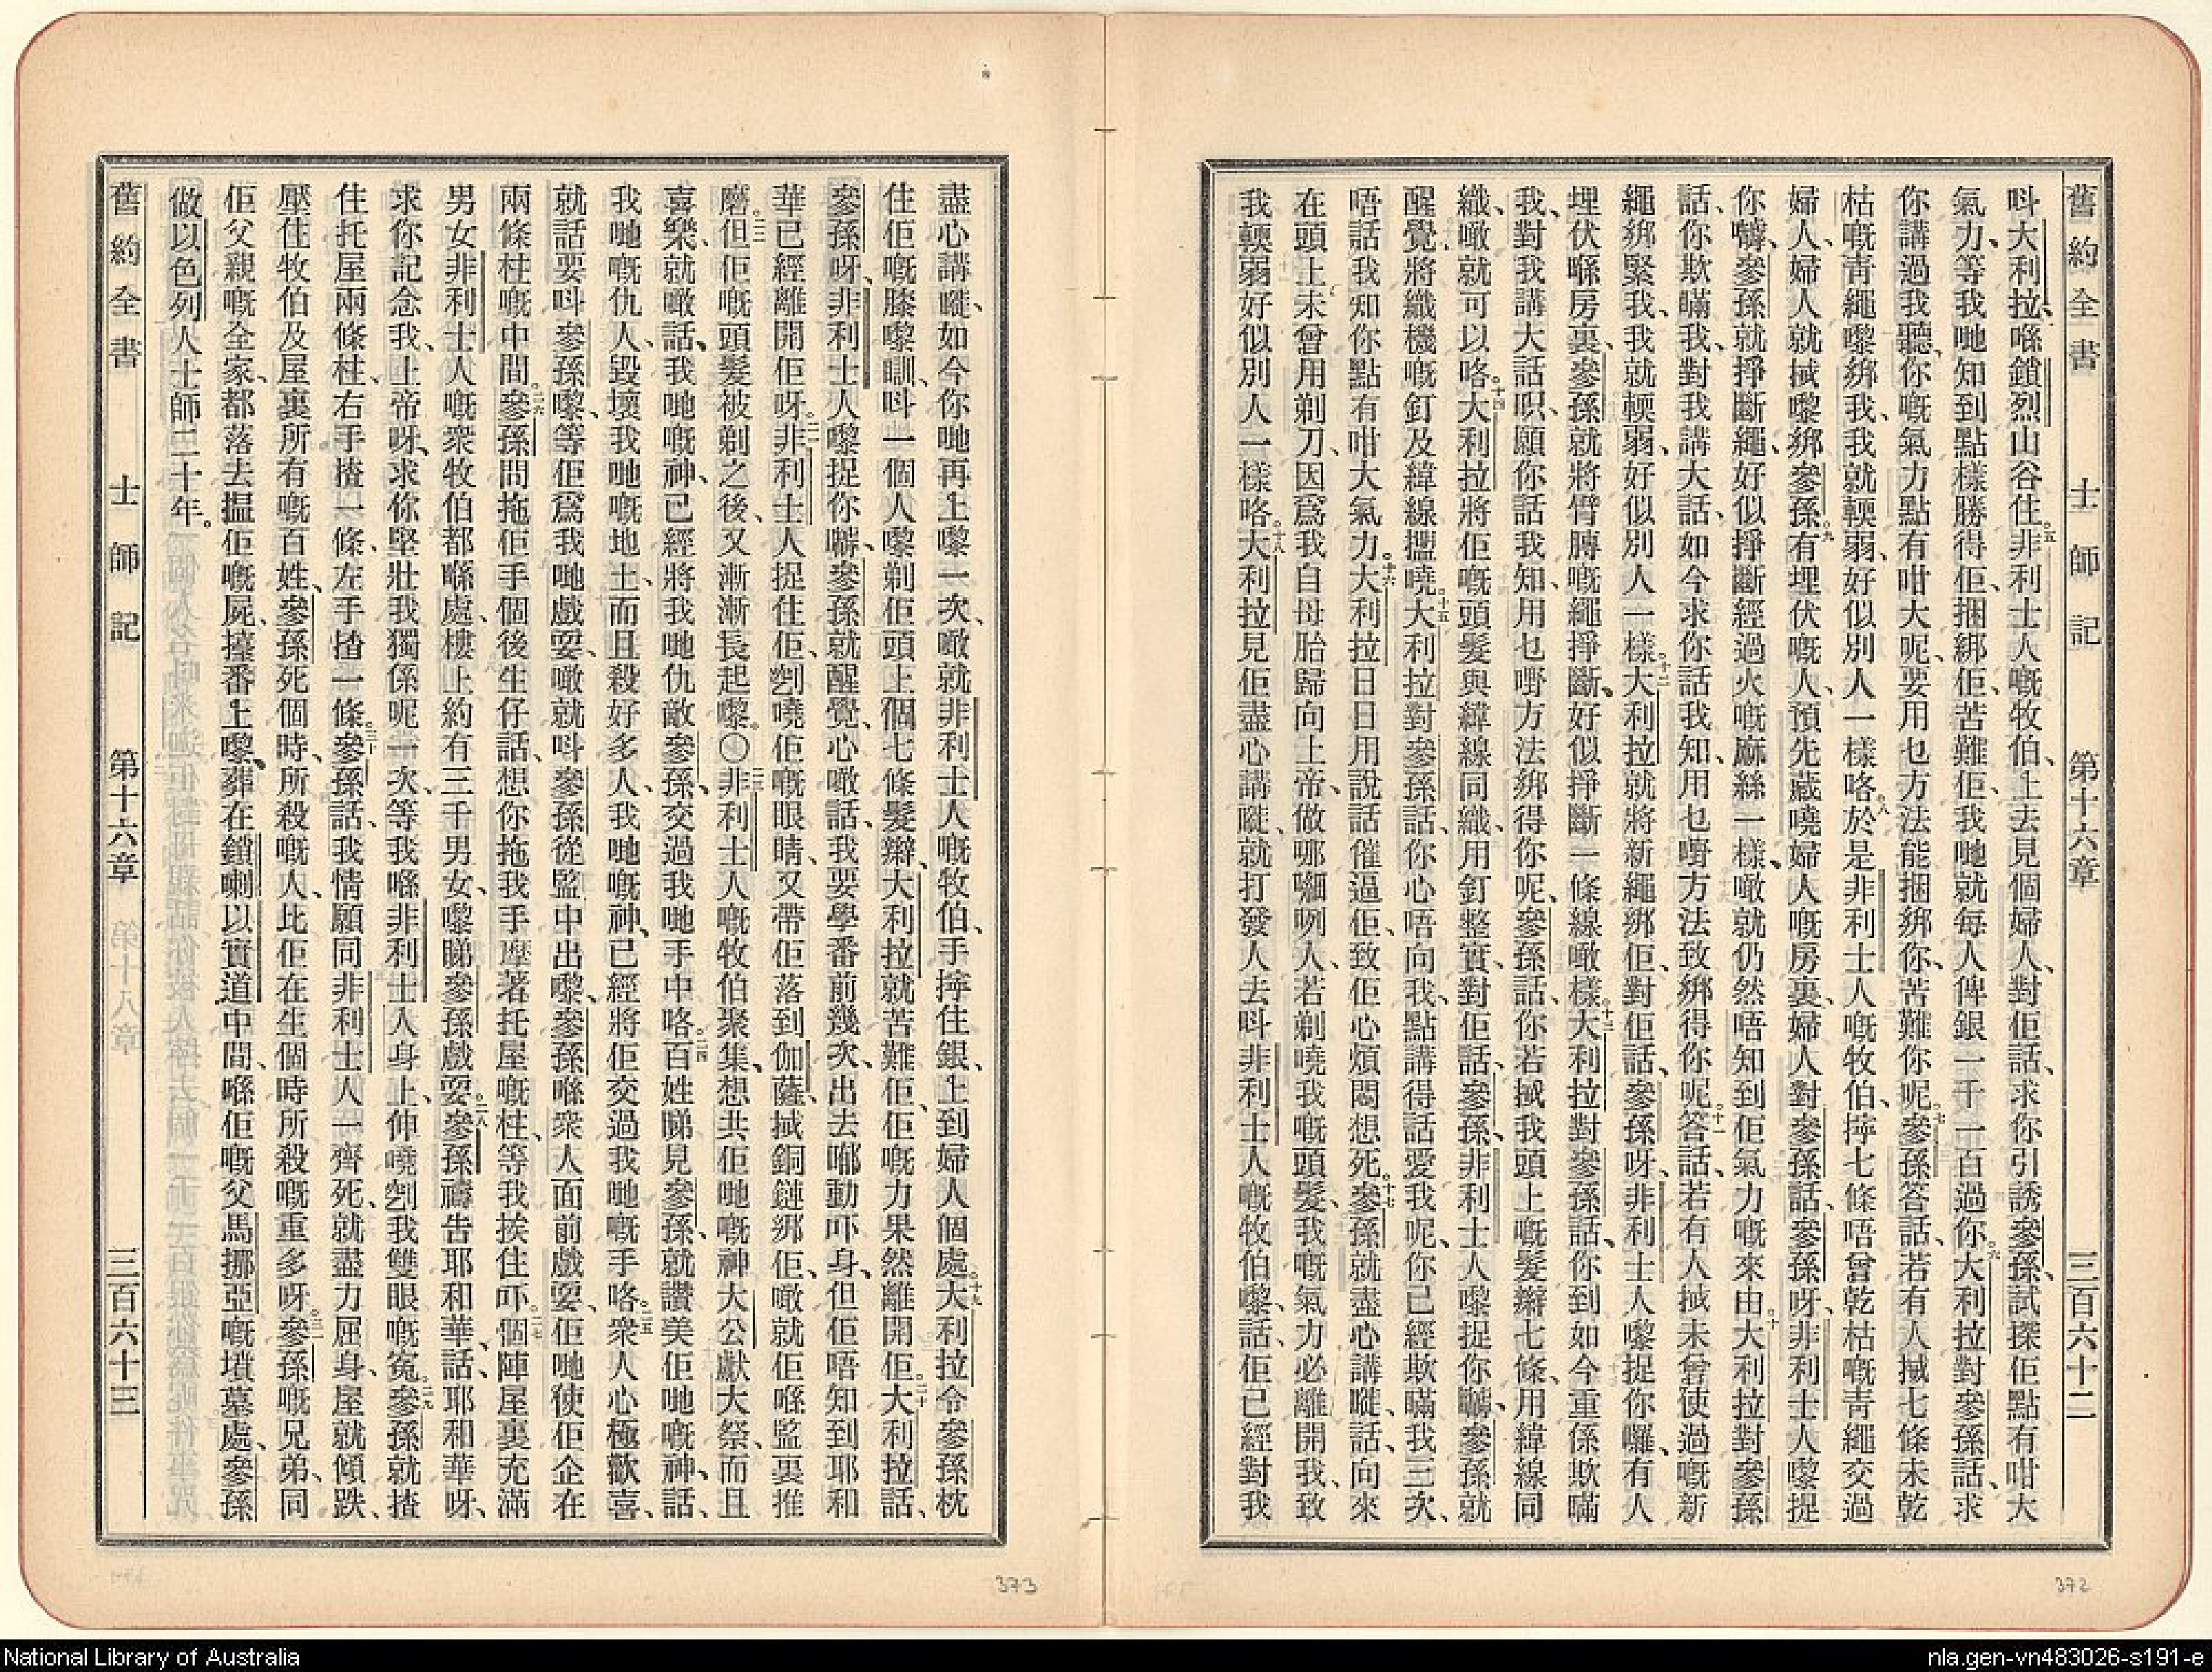 舊約全書　士師記　第十六章　三百六十二
呌大利拉喺鎖烈山谷住。五非利士人嘅牧伯、上去見個婦人、對佢話、求你引誘參孫、試探佢點有咁大
氣力、等我哋知到點樣勝得佢、捆綁佢、苦難佢、我哋就每人俾銀一千一百過你。六大利拉對參孫話、求
你講過我聽、你嘅氣力點有咁大呢、要用乜方法能捆綁你、苦難你呢。七參孫答話、若有人搣七條未乾
枯嘅靑繩嚟綁我、我就輭弱、好似別人一樣咯。八於是非利士人嘅牧伯、擰七條唔曾乾枯嘅靑繩交過
婦人、婦人就搣嚟綁參孫。九有埋伏嘅人、預先藏嘵婦人嘅房裏、婦人對參孫話、參孫呀、非利士人嚟捉
你嚹、參孫就掙斷繩、好似掙斷經過火嘅麻絲一樣、噉就仍然唔知到佢氣力嘅來由。十大利拉對參孫
話、你欺瞞我、對我講大話、如今求你話我知、用乜嘢方法致綁得你呢。十一答話、若有人搣未曾使過嘅新
繩綁緊我、我就輭弱、好似別人一樣。十二大利拉就將新繩綁佢、對佢話、參孫呀、非利士人嚟捉你囉、有人
埋伏喺房裏、參孫就將臂膊嘅繩掙斷、好似掙斷一條線噉樣。十三大利拉對參孫話、你到如今重係欺瞞
我、對我講大話呮、願你話我知、用乜嘢方法綁得你呢、參孫話、你若搣我頭上嘅髮辮七條、用緯線同
織、噉就可以咯。十四大利拉將佢嘅頭髮與緯線同織、用釘整實、對佢話、參孫、非利士人嚟捉你嚹、參孫就
醒覺、將織機嘅釘及緯線攞嘵。十五大利拉對參孫話、你心唔向我、點講得話愛我呢、你已經欺瞞我三次、
唔話我知你點有咁大氣力。十六大利拉日日用說話催逼佢、致佢心煩悶想死。十七參孫就盡心講嘥、話、向來
在頭上未曾用剃刀、因爲我自母胎歸向上帝、做哪嗰咧人、若剃嘵我嘅頭髮、我嘅氣力必離開我、致
我輭弱好似別人一樣咯。十八大利拉見佢盡心講嘥、就打發人去呌非利士人嘅牧伯嚟、話、佢已經對我
盡心講嘥、如今你哋再上嚟一次、噉就非利士人嘅牧伯、手擰住銀、上到婦人個處。十九大利拉令參孫枕
住佢嘅膝嚟瞓、呌一個人嚟剃佢頭上個七條髮辮、大利拉就苦難佢、佢嘅力果然離開佢。二十大利拉話、
參孫呀、非利士人嚟捉你嚹、參孫就醒覺、心噉話、我要學番前幾次、出去郁動吓身、但佢唔知到耶和
華已經離開佢呀。二一非利士人捉住佢、㓟嘵佢嘅眼睛、又帶佢落到伽薩、搣銅鏈綁佢、噉就佢喺監裏推
磨。二二但佢嘅頭髮被剃之後、又漸漸長起嚟。〇二三非利士人嘅牧伯聚集、想共佢哋嘅神大公獻大祭、而且
喜樂、就噉話、我哋嘅神、已經將我哋仇敵參孫、交過我哋手中咯。二四百姓睇見參孫、就讚美佢哋嘅神、話、
我哋嘅仇人、毀壞我哋嘅地土、而且殺好多人、我哋嘅神、已經將佢交過我哋嘅手咯。二五衆人心極歡喜、
就話要呌參孫嚟、等佢爲我哋戲耍、噉就呌參孫從監中出嚟、參孫喺衆人面前戲耍、佢哋使佢企在
兩條柱嘅中間。二六參孫問拖佢手個後生仔話、想你拖我手摩著托屋嘅柱、等我挨住吓。二七個陣屋裏充滿
男女、非利士人嘅衆牧伯都喺處、樓上約有三千男女、嚟睇參孫戲耍。二八參孫禱告耶和華、話、耶和華呀、
求你記念我、上帝呀、求你堅壯我獨係呢一次、等我喺非利士人身上、伸嘵㓟我雙眼嘅冤。二九參孫就揸
住托屋兩條柱、右手揸一條、左手揸一條。三十參孫話、我情願同非利士人一齊死、就盡力屈身、屋就傾跌、
壓住牧伯及屋裏所有嘅百姓、參孫死個時、所殺嘅人、比佢在生個時所殺嘅重多呀。三一參孫嘅兄弟、同
佢父親嘅全家、都落去揾佢嘅屍、擡番上嚟、葬在鎖喇以實道中間、喺佢嘅父馬挪亞嘅墳墓處、參孫
做以色列人士師二十年。
舊約全書　士師記　第十六章　三百六十三
373
372
National Library of Australia
nla.gen-vn483026-s191-e